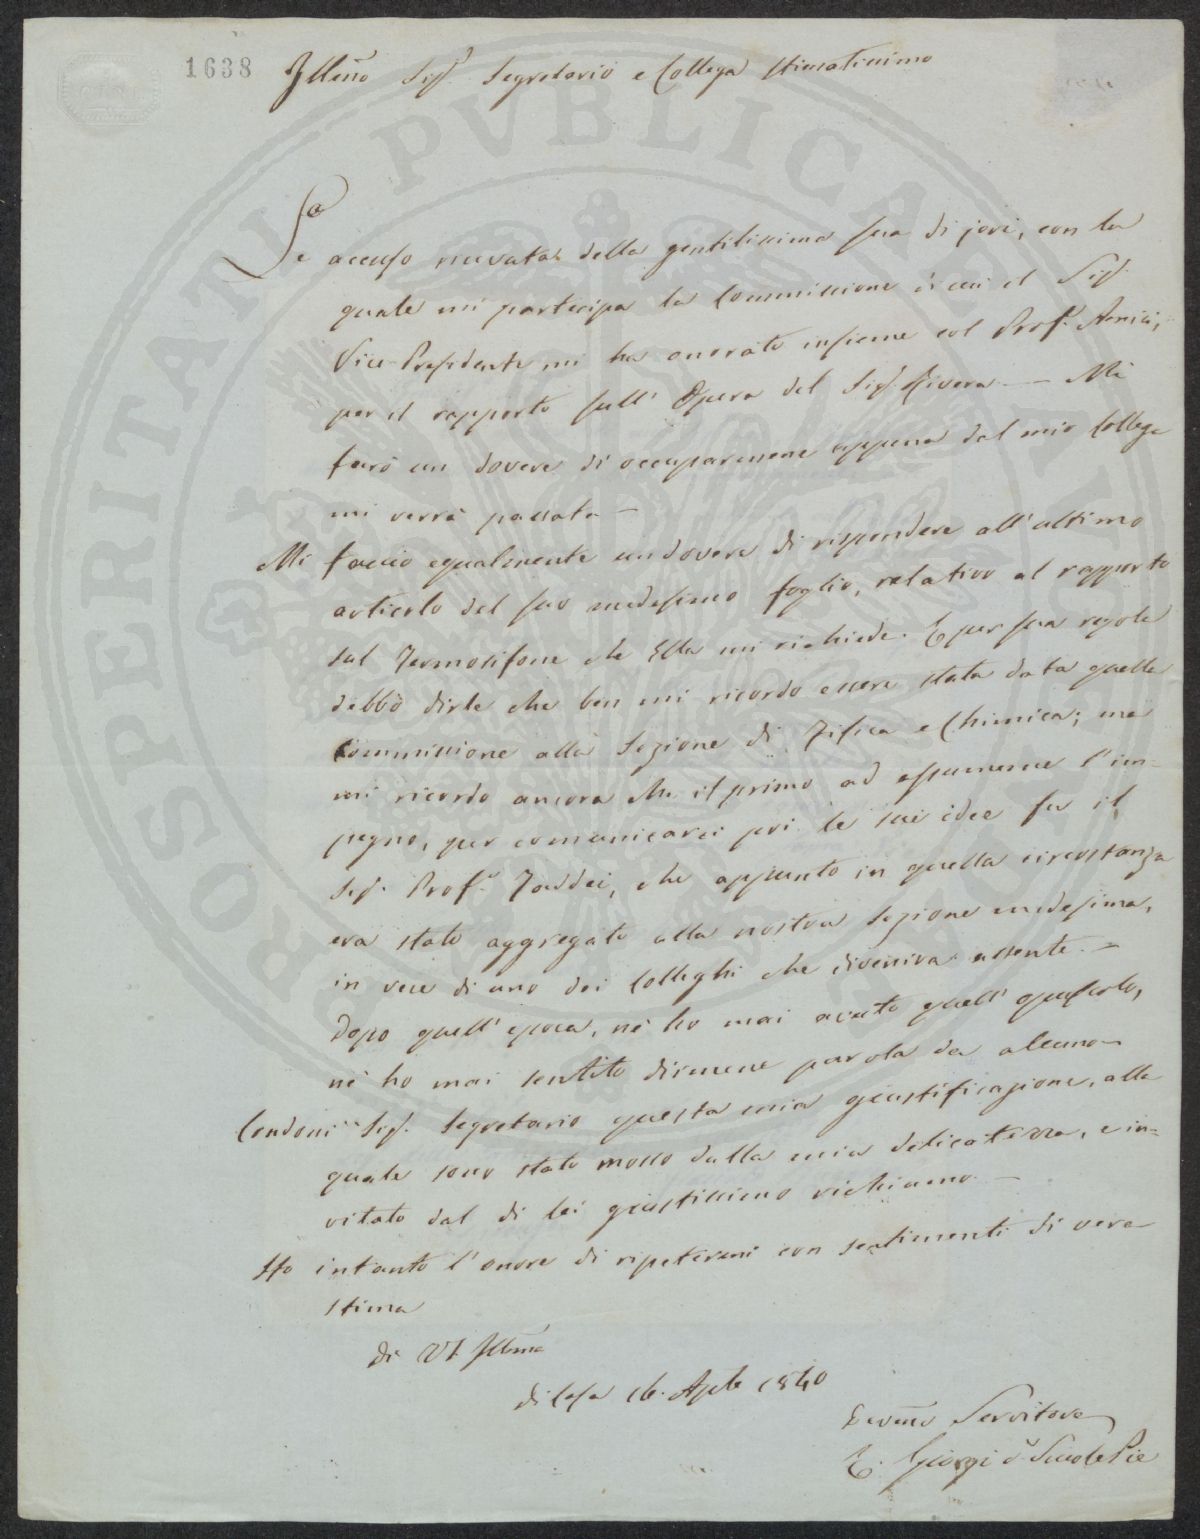 1638
Illmo Sigr. Segretario e Collega stimatissimo
Le accuso ricevuta della gentilissima sua di jeri, con la
quale mi partecipa la Commissione di cui il Sigr.
Vice-Presidente mi ha onorato insieme col Profr. Amici,
per il rapporto sull' Opera del Sigr. Rivera — Mi
farò un dovere di occuparmene appena dal mio Collega
mi verrà passata —
Mi faccio egualmente un dovere di rispondere all' ultimo
articolo del suo medesimo foglio, relativo al rapporto
sul Termosifone che Ella mi richiede. E per sua regola
debbo dirle che ben mi ricordo essere stata data quella
Commissione alla Sezione di Fisica e Chimica; ma
mi ricordo ancora che il primo ad assumerne l'im-
pegno, per comunicarci poi le sue idee fu il
Sigr. Profr. Taddei, che appunto in quella circostanza
era stato aggregato alla nostra Sezione medesima,
in vece di uno dei Colleghi che diveniva assente. —
Dopo quell' epoca, nè ho mai avuto quell' opuscolo,
nè ho mai sentito dirmene parola da alcuno —
Condoni Sigr. Segretario questa mia giustificazione, alla
quale sono stato mosso dalla mia delicatezza, e in=
vitato dal di lei giustissimo richiamo. —
Ho intanto l'onore di ripetermi con sentimenti di vera
stima
di VS. Illma
di Casa 16. Aple 1840
Devmo Servitore
E. Giorgi d. Scuole Pie
PROSPERITATI PVBLICAE